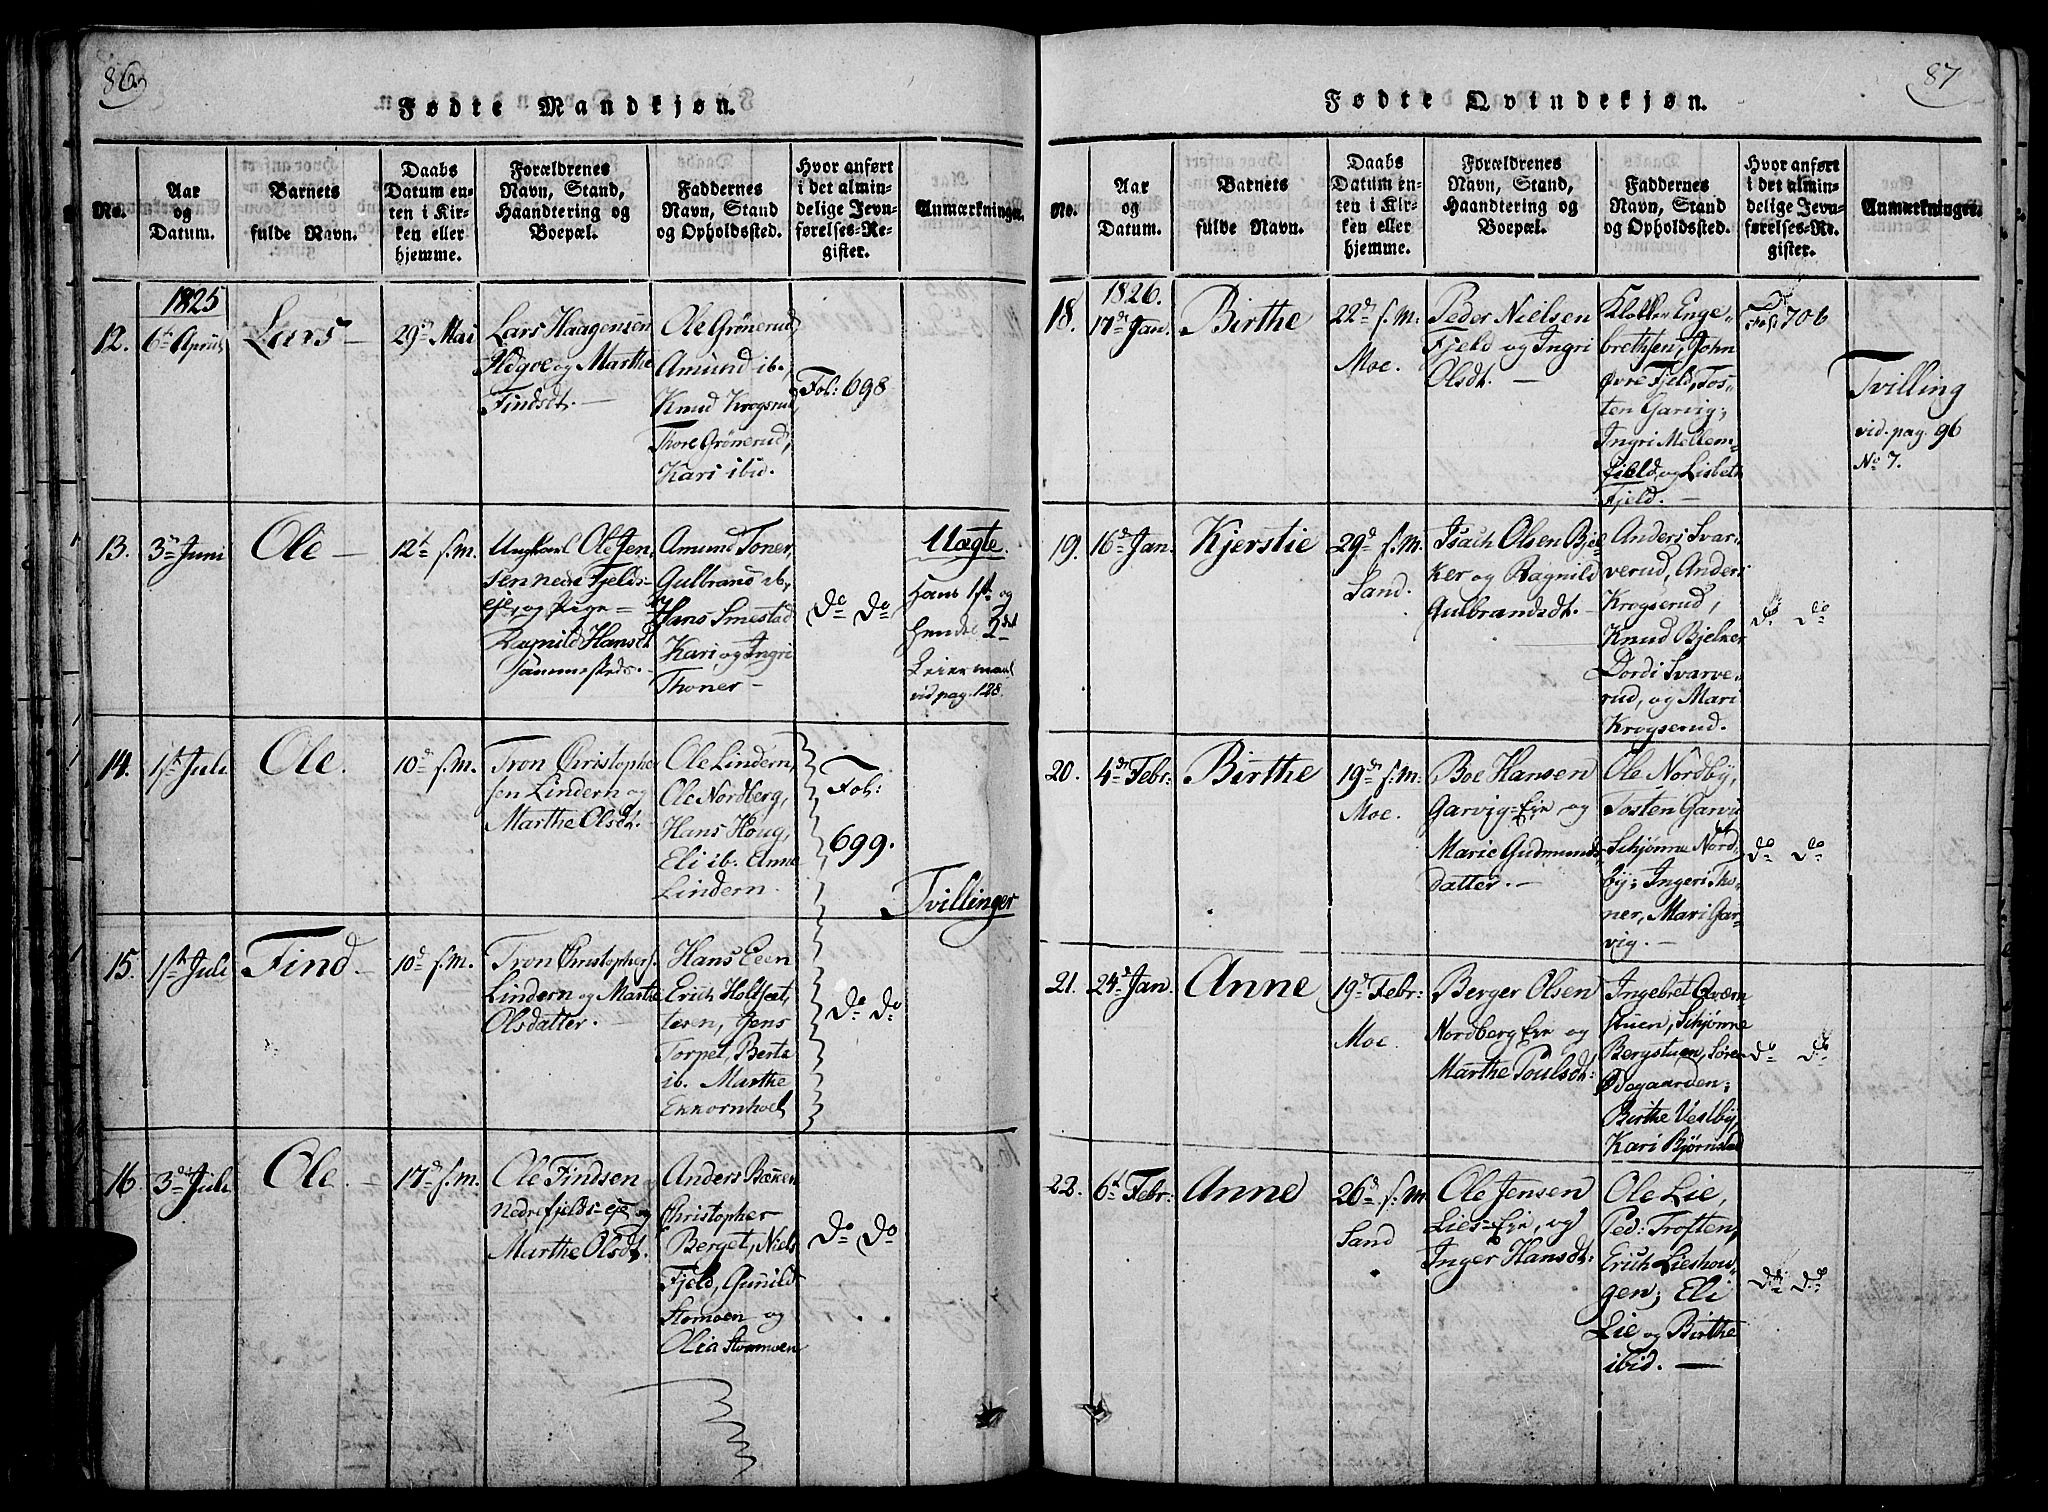 86
Fødte Mandkjøn.
No.
Aar
og
Datum.
Barnets
fulde Navn.
Daabs
Datum en-
ten i Kir-
ken eller
hjemme.
Forældrenes
Navn, Stand,
Haandtering og
Boepæl.
Faddernes
Navn, Stand
og Opholdssted.
Hvor anført
i det almin-
delige Jevn-
førelses-Re-
gister.
Anmærkninger.
12.
1825
6te April
Lars
29de Mai
Lars Haagensen
og Marthe
Findsdt.
Ole Grönerud,
Amund ib.,
Knud Krogsrud,
Thore Grönerud,
Kari ibid.
Fol: 698
13.
3de Juni
Ole
12te s.m.
Ungkarl Ole Jen-
sen nedre Fjelds-
eje, og Pige
Ragnild Hansdt
sammesteds.
Amund Toner,
Gulbrand ib,
Hans Smestad
Kari og Ingri
Thoner
do do
Uægte.
Hans 1ste og
hendes 2det
Leiermaal
vid pag. 128.
14.
1ste Juli
Ole.
10de s.m.
Tron Christopher
sen Lindern og
Marthe Olsdt.
Ole Lindern,
Ole Nordberg,
Hans Houg,
Eli ib. Anne
Lindern.
Fol:
699.
Tvillinger
15.
1ste Juli
Find
10de s.m.
Tron Christophers.
Lindern og Marthe
Olsdatter.
Hans Eeen
Erich Holtsæt,
teren, Jens
Torpet, Berta
ib. Marthe
Ekkornhoel
do do
16.
3de Juli
Ole.
17de s.m.
Ole Findsen
Nedrefjelds-eje og
Marthe Olsdt.
Anders Bækken
Christopher
Berget, Niels
Fjeld, Gunild
Stomoen og
Olia Stomoen
do do
87
Fødte Qvindekjøn.
No.
Aar
og
Datum.
Barnets
fulde Navn.
Daabs
Datum en-
ten i Kir-
ken eller
hjemme.
Forældrenes
Navn, Stand,
Haandtering og
Boepæl.
Faddernes
Navn, Stand
og Opholdssted.
Hvor anført
i det almin-
delige Jevn-
førelses-Re-
gister.
Anmærkninger.
18.
1826.
17de Jan.
Birthe
22de s.M.
Moe.
Peder Nielsen
Fjeld og Ingri
Olsdt.
Enge-
brethsen, John
øvre Fjeld, Tos-
ten Garvig;
Ingri Mellem-
fjeld og Lisbeth
Fjeld.
706
Tvilling
vid. pag. 96
No 7.
19.
16de Jan.
Kjerstie
29de s.M.
Sand.
Isach Olsen Bjel
ker og Ragnild
Gulbrandsdt.
Anders Svar-
verud, Anders
Krogserud,
Knud Bjelker
Dordi Svarve-
rud, og Mari
Krogserud.
do do
20.
4de Febr:
Birthe
19de s.M.
Moe.
Boe Hansen
Garvig-Eje og
Marie Gudmunds
datter.
Ole Nordby,
Tosten Garvi
Schjönne Nord-
by; Ingeri Tho-
ner, Mari Gar-
vig.
do do
21.
24de Jan.
Anne
19de Febr:
Moe.
Berger Olsen
Nordberg Eje og
Marthe Poulsdt:
Ingebret Qværn
stuen, Schjönne
Bergstuen, Søren
Ødegaarden;
Birthe Vestby,
Kari Bjørnstad
do do
22.
6te Febr:
Anne
26de s.M.
Sand
Ole Jensen
Lies-Eje, og
Inger Hansdt:
Ole Lie,
Ped: Troften,
Erich Lieshou-
gen; Eli
Lie og Birthe
ibid.
do do